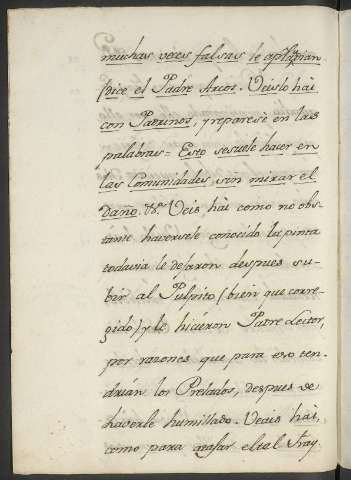 muchas veses falsas le aplauzan
(dice el Padre Arcos. Veislo hài
con Patxinos, y reparese en las
palabras = Esto sesuele haver en
las Comunidades, sin mirar el
Daño. &a. Veis hài como no obs-
tante haversele conocido la pinta
todavia le dejaron despues su-
bir al Pulpito (bien que corre-
gido) y le hicieron Padre Lector,
por razones que para eso ten-
drian los Prelados, despues de
haverle humillado. Veais hài,
como para atajar el tal Fray